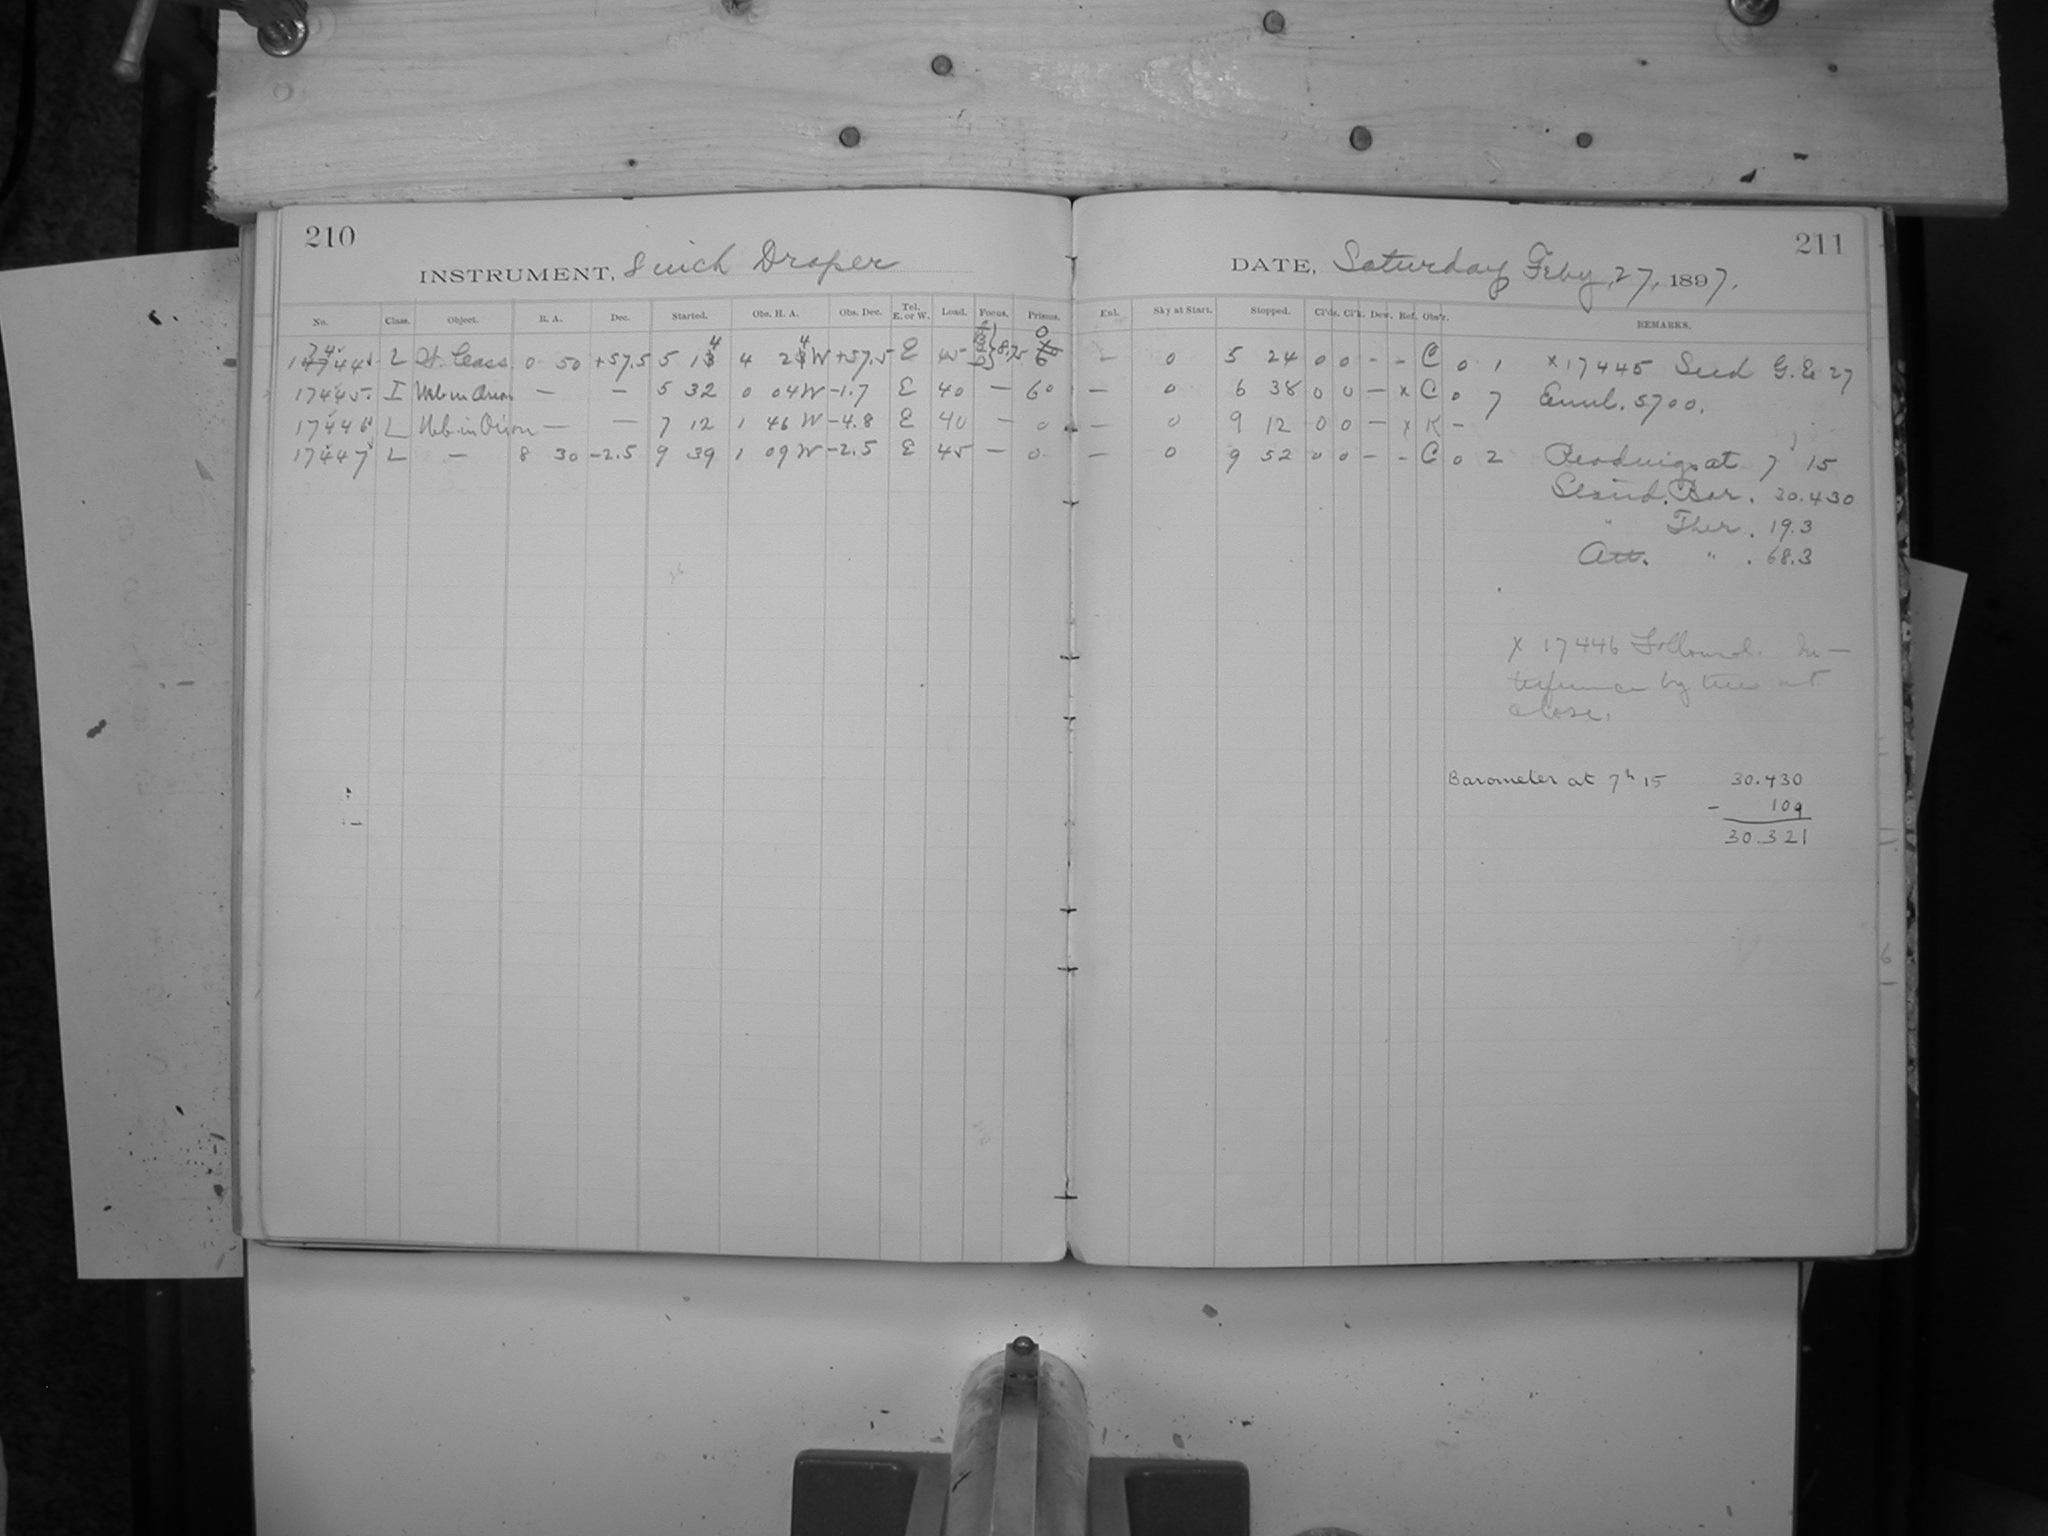 210
INSTRUMENT, 8 inch Draper
No. Class. Object. R. A. Dec. Started. Obs. H. A. Obs. Dec. Tel. E. or W. Load. Focus. Prisms.
L Cass. 0 50 +57.5 5 4 2 W +57.5 E 45 8.75 0
17445 I Neb. in Orion — — 5 32 0 04 W -1.7 E 40 — 60
17446 L Neb. in Orion — — 7 12 1 46 W -4.8 E 40 — 0
17447 L — 8 30 -2.5 9 39 1 09 W -2.5 E 45 — 0
211
DATE, Saturday Feby. 27, 1897.
Enl. Sky at Start. Stopped. Cl'ds. Cl'k. Dew. Ref. Obs'r. REMARKS.
— 0 5 24 0 0 - - C 0 1 x 17445 Seed G. E. 27
— 0 6 38 0 0 — x C 0 7 Emul. 5700.
— 0 9 12 0 0 — x K -
— 0 9 52 0 0 - - C 0 2 Readings at 7 15
Stand. Bar. 30.430
" Ther. 19.3
Att. " . 68.3
x 17446 Followed. In-
terference by tree at
close.
Barometer at 7h 15 30.430
- 109
30.321